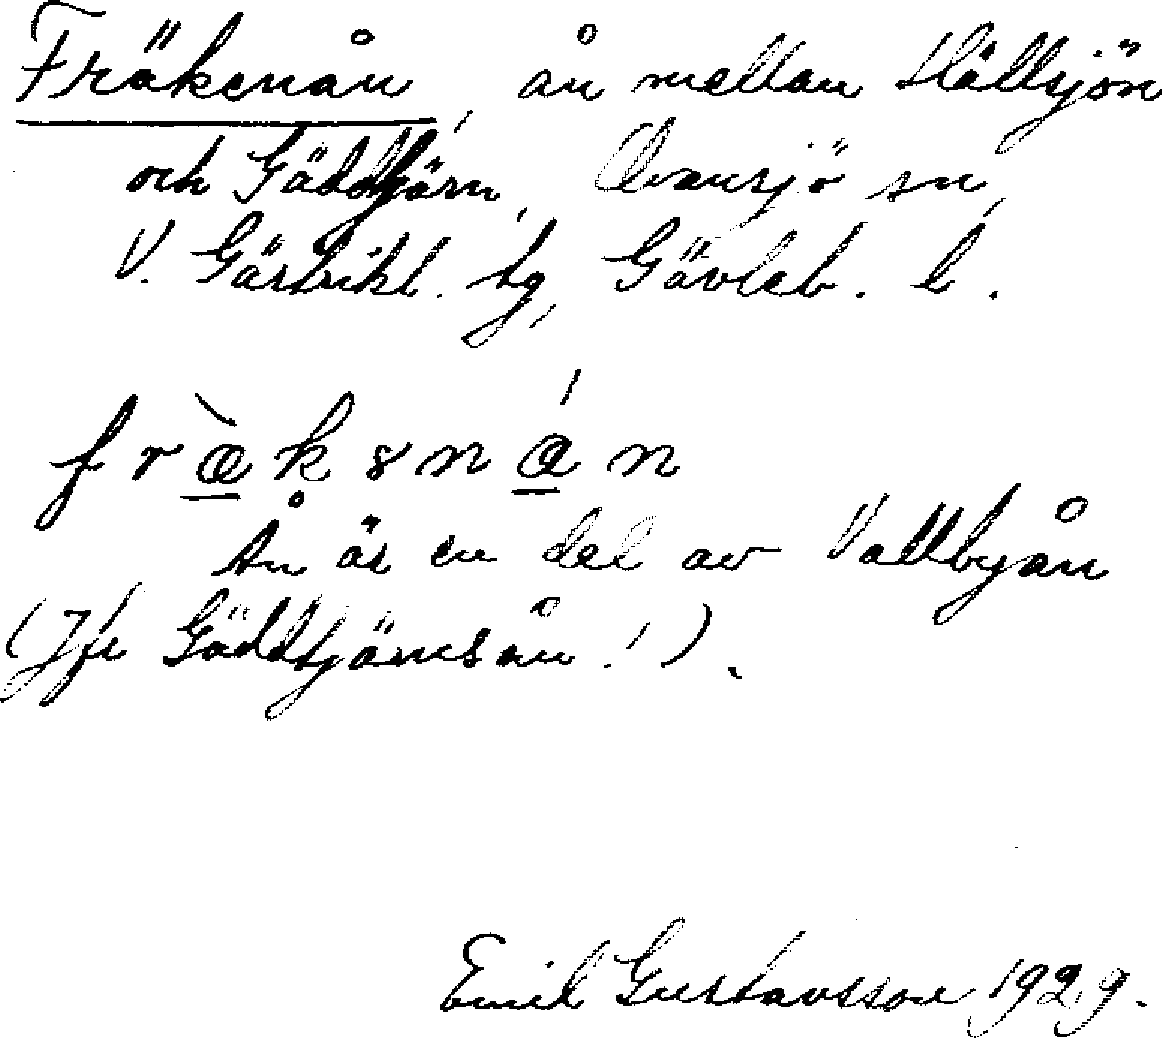 Fräkenån, ån mellan Hällsjön
och Gäddtjärn, Ovansjö sn,
V. Gästrikl. tg, Gävleb. l.
fræ̀kɘnán
Ån är en del av Vallbyån
(Jfr Gäddtjärnsån!).
Emil Gustavsson 1929.